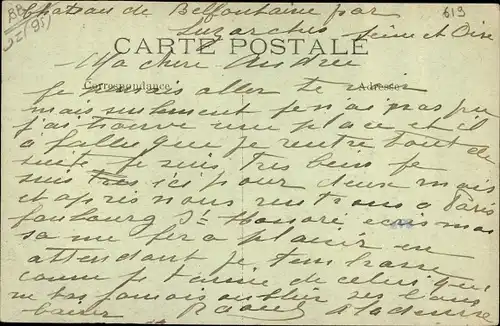 Chateau de Belfontaine par
Luzarches Seine et Oise
619
CARTE POSTALE
Ma chere Andree
Correspondance Adresse
Je pensais aller te voir
mais seulement je n'ai pas pu
j'ai trouvé une place et il
a fallue que je rentre tout de
suite je suis tres bien je
suis ici pour deux mois
et apres nous rentrons a Paris
faubourg St Honoré ecris moi
sa me fera plaisir en
attendant je t'embrasse
comme je t'aime de celui qui
ne tas jamais oublier ses bons
baiser